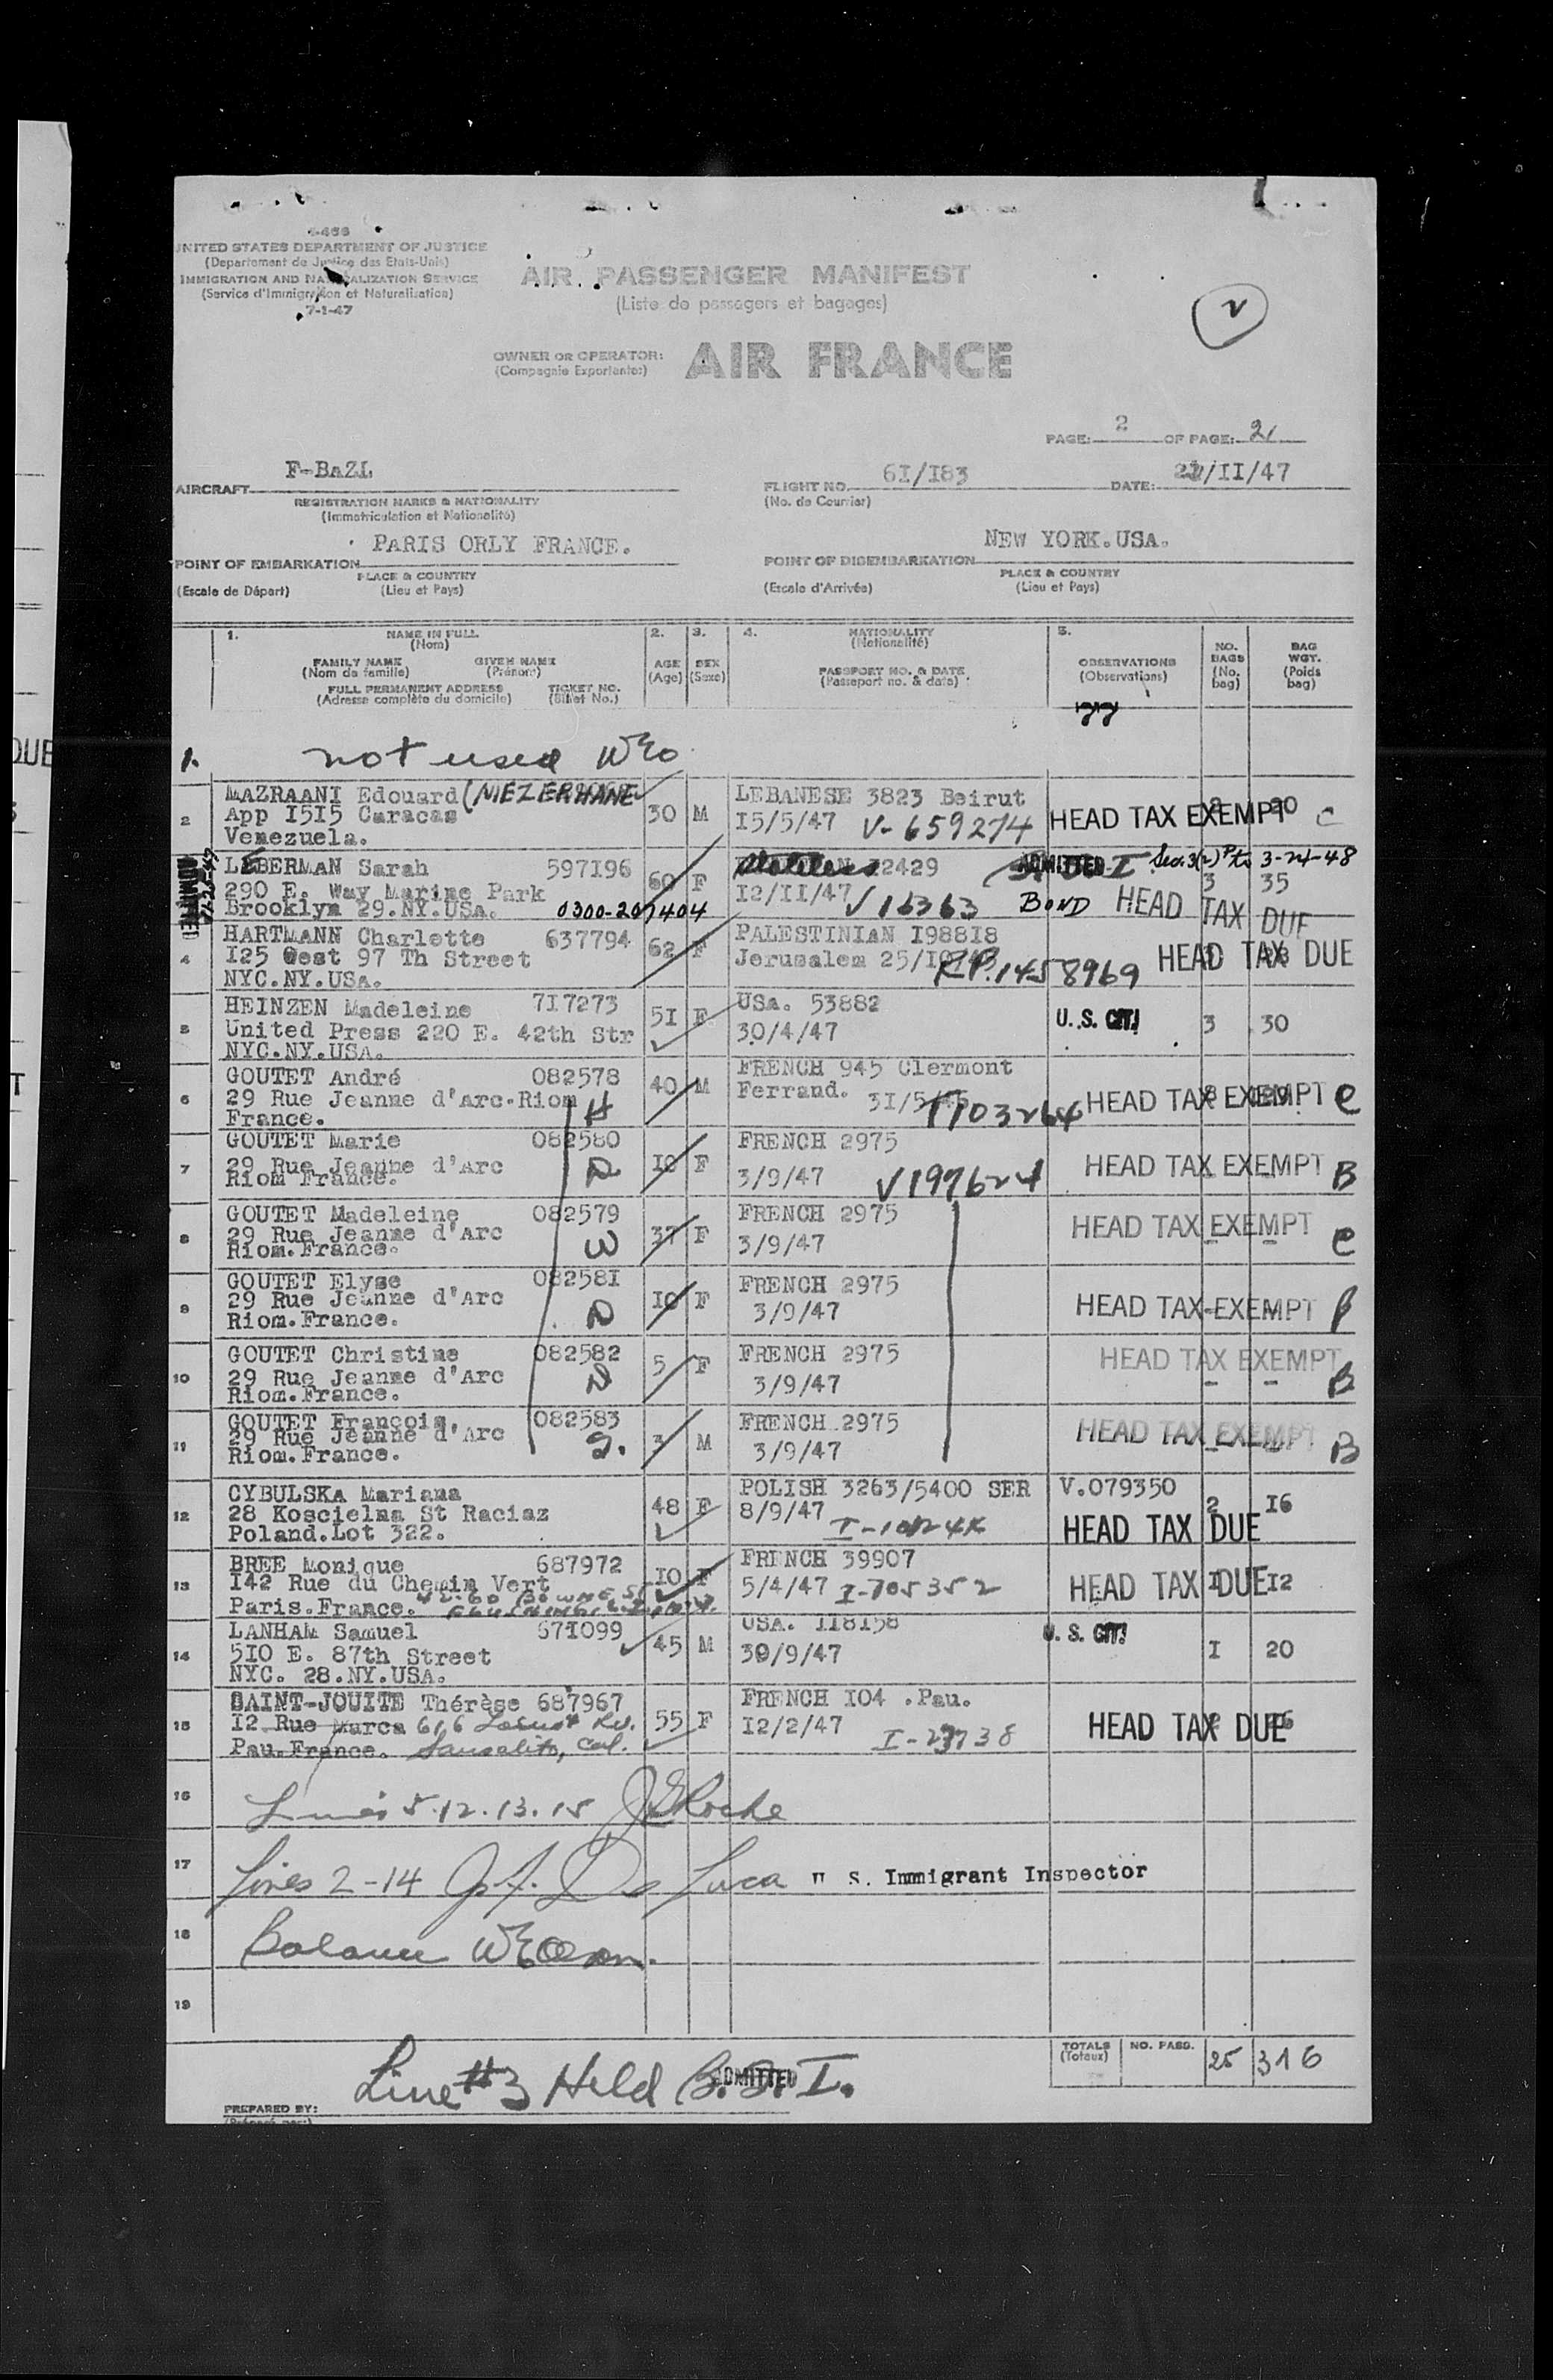 I-466
UNITED STATES DEPARTMENT OF JUSTICE
(Departement de Justice des Etats-Unis)
IMMIGRATION AND NATURALIZATION SERVICE
(Service d'Immigration et Naturalisation)
7-1-47
AIR PASSENGER MANIFEST
(Liste de passagers et bagages)
2
OWNER OR OPERATOR: AIR FRANCE
(Compagnie Exportante:)
PAGE: 2 OF PAGE: 21
AIRCRAFT F-BaZL
REGISTRATION MARKS & NATIONALITY
(Immatriculation et Nationalité)
FLIGHT NO. 6I/I83 DATE: /II/47
(No. de Courrier)
POINT OF EMBARKATION PARIS ORLY FRANCE.
PLACE & COUNTRY
(Escale de Départ) (Lieu et Pays)
POINT OF DISEMBARKATION NEW YORK.USA.
PLACE & COUNTRY
(Escale d'Arrivée) (Lieu et Pays)
1. NAME IN FULL
(Nom)
FAMILY NAME GIVEN NAME
(Nom de famille) (Prénom)
FULL PERMANENT ADDRESS TICKET NO.
(Adresse complète du domicile) (Billet No.)
2. AGE (Age)
3. SEX (Sexe)
4. NATIONALITY
(Nationalité)
PASSPORT NO. & DATE
(Passeport no. & date)
5. OBSERVATIONS
(Observations)
NO. BAGS (No. bag)
BAG WGT. (Poids bag)
1. not used WEO
2 MAZRAANI Edouard (MEZERHANE 30 M LEBANESE 3823 Beirut
App I5I5 Caracas I5/5/47 V-659274 HEAD TAX EXEMPT 20 C
Venezuela.
LEBERMAN Sarah 597I96 60 F Stateless 2429 ADMITTED Sec. 3(2) Pts 3-24-48
290 E. Way Marine Park I2/II/47 V 16363 BOND HEAD TAX DUE 3 35
Brooklyn 29.NY.USa. 0300-207404
ADMITTED
4 HARTMANN Charlotte 637794 62 F PALESTINIAN I988I8
I25 West 97 Th Street Jerusalem 25/I0 R.P.1458969 HEAD TAX DUE
NYC.NY.USa.
5 HEINZEN Madeleine 7I7273 5I F USa. 53882
United Press 220 E. 42th Str 30/4/47 U.S. CIT! 3 30
NYC.NY.USA.
6 GOUTET André 082578 40 M FRENCH 945 Clermont
29 Rue Jeanne d'Arc-Riom H Ferrand. 3I/5 1703264 HEAD TAX EXEMPT C
France.
7 GOUTET Marie 082580 I0 F FRENCH 2975
29 Rue Jeanne d'Arc D 3/9/47 V197624 HEAD TAX EXEMPT B
Riom France.
8 GOUTET Madeleine 082579 37 F FRENCH 2975
29 Rue Jeanne d'Arc W 3/9/47 HEAD TAX EXEMPT C
Riom.France.
9 GOUTET Elyse 08258I I0 F FRENCH 2975
29 Rue Jeanne d'Arc D 3/9/47 HEAD TAX EXEMPT B
Riom.France.
10 GOUTET Christine 082582 5 F FRENCH 2975
29 Rue Jeanne d'Arc D 3/9/47 HEAD TAX EXEMPT B
Riom.France.
11 GOUTET François. 082583 3 M FRENCH.2975
29 Rue Jeanne d'Arc S. 3/9/47 HEAD TAX EXEMPT B
Riom.France.
12 CYBULSKA Mariana 48 F POLISH 3263/5400 SER V.079350
28 Koscielna St Raciaz 8/9/47 2 I6
Poland.Lot 322. HEAD TAX DUE
13 BREE Monique 687972 I0 F FRENCH 39907
I42 Rue du Chemin Vert 5/4/47 I-705352 HEAD TAX DUE I I2
Paris.France.
14 LANHAM Samuel 67I099 45 M USA. II8I58 U.S. CIT!
5I0 E. 87th Street 30/9/47 I 20
NYC. 28.NY.USA.
15 SAINT-JOUITE Thérèse 687967 55 F FRENCH I04 .Pau.
I2 Rue Marca 616 Locust Rd. I2/2/47 I-23738 HEAD TAX DUE
Pau.France. Sausalito, Cal.
16 Lines 5.12.13.15 JERoche
17 Lines 2-14 J.F. De Luca U S. Immigrant Inspector
18 Balance WEO
19
TOTALS (Totaux) NO. PASS. 25 316
Line #3 Held B.S.I. ADMITTED
PREPARED BY: